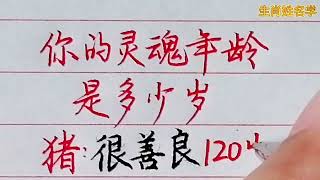 生肖姓名学
你的灵魂年龄
是多少岁
猪:很善良120